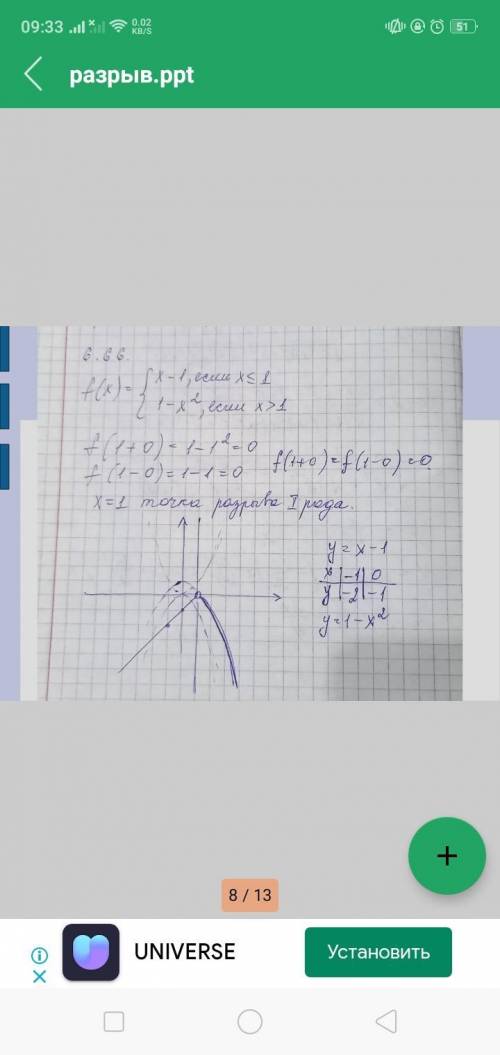 09:33 0.02 KB/S 51
разрыв.ppt
6.66.
f(x) = { x-1, если x ≤ 1
1-x², если x > 1
f(1+0) = 1-1² = 0
f(1-0) = 1-1 = 0 f(1+0) = f(1-0) = 0
x=1 точка разрыва I рода.
y = x-1
x | -1 | 0
y | -2 | -1
y = 1-x²
+
8 / 13
UNIVERSE
Установить